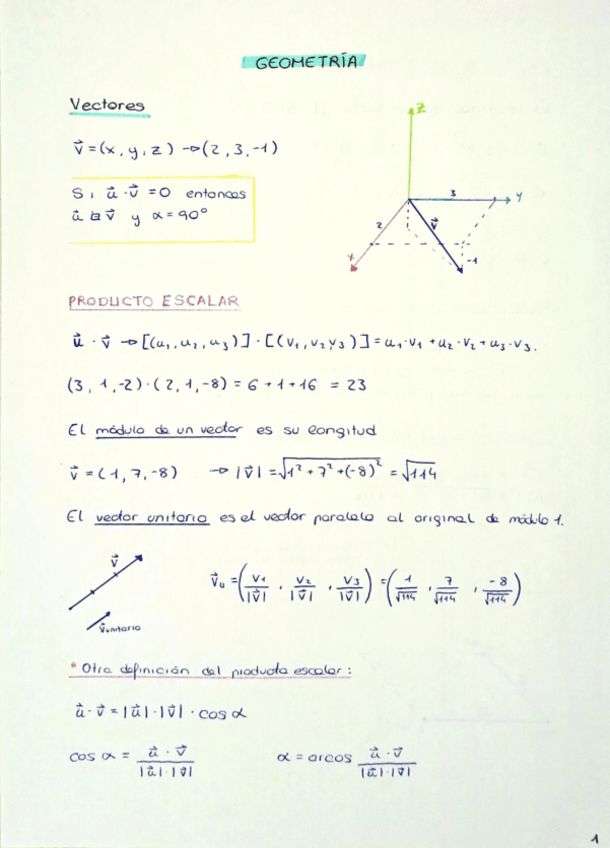 GEOMETRÍA
Vectores
v⃗ = (x, y, z) → (2, 3, -1)
Si u⃗ · v⃗ = 0 entonces
u⃗ ⊾ v⃗ y α = 90°
z
3
y
2
v⃗
x
-1
PRODUCTO ESCALAR
u⃗ · v⃗ → [(u₁, u₂, u₃)] · [(v₁, v₂, v₃)] = u₁·v₁ + u₂·v₂ + u₃·v₃.
(3, 1, -2) · (2, 1, -8) = 6 + 1 + 16 = 23
El módulo de un vector es su longitud
v⃗ = (1, 7, -8) → |v⃗| = √(1² + 7² + (-8)²) = √114
El vector unitario es el vector paralelo al original de módulo 1.
v⃗
v⃗unitario
v⃗ᵤ = (v₁/|v⃗|, v₂/|v⃗|, v₃/|v⃗|) = (1/√114, 7/√114, -8/√114)
* Otra definición del producto escalar:
u⃗ · v⃗ = |u⃗| · |v⃗| · cos α
cos α = u⃗ · v⃗ / |u⃗| · |v⃗|
α = arcos u⃗ · v⃗ / |u⃗| · |v⃗|
1